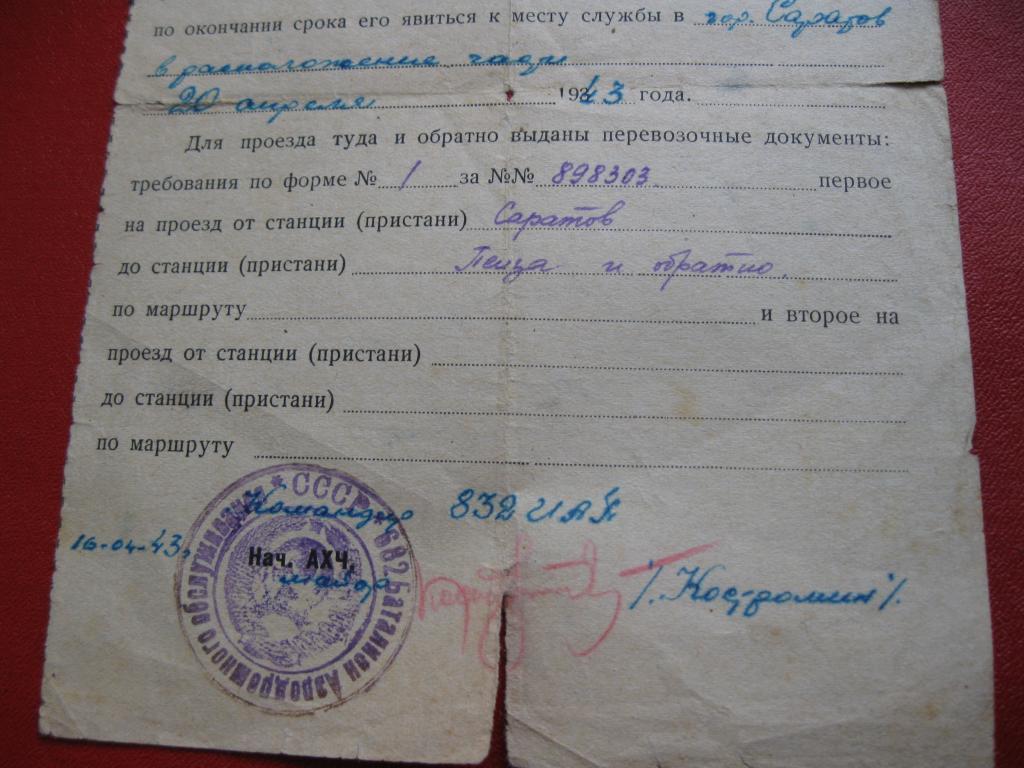 по окончании срока его явиться к месту службы в гор. Саратов
в расположение части
20 апреля 1943 года.
Для проезда туда и обратно выданы перевозочные документы:
требования по форме № 1 за №№ 898303 первое
на проезд от станции (пристани) Саратов
до станции (пристани) Пенза и обратно.
по маршруту и второе на
проезд от станции (пристани)
до станции (пристани)
по маршруту
Командир 832 ИАП
16-04-43г
Нач. АХЧ,
майор
/.Костромин/.
СССР * 682 Баталион Аэродромного обслуживания *